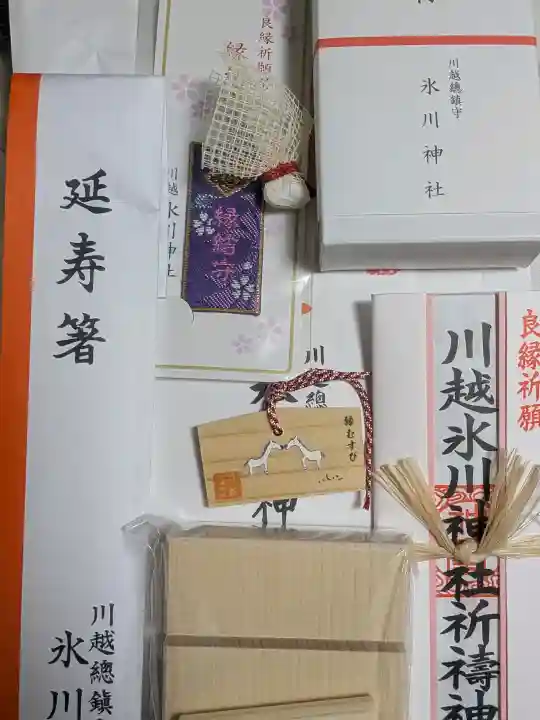 延寿箸
川越總鎮
氷川
良縁祈願
縁
川越氷川神社
縁結守
川越總鎮守
氷川神社
川越總
神
縁むすび
良縁祈願
川越氷川神社祈禱神